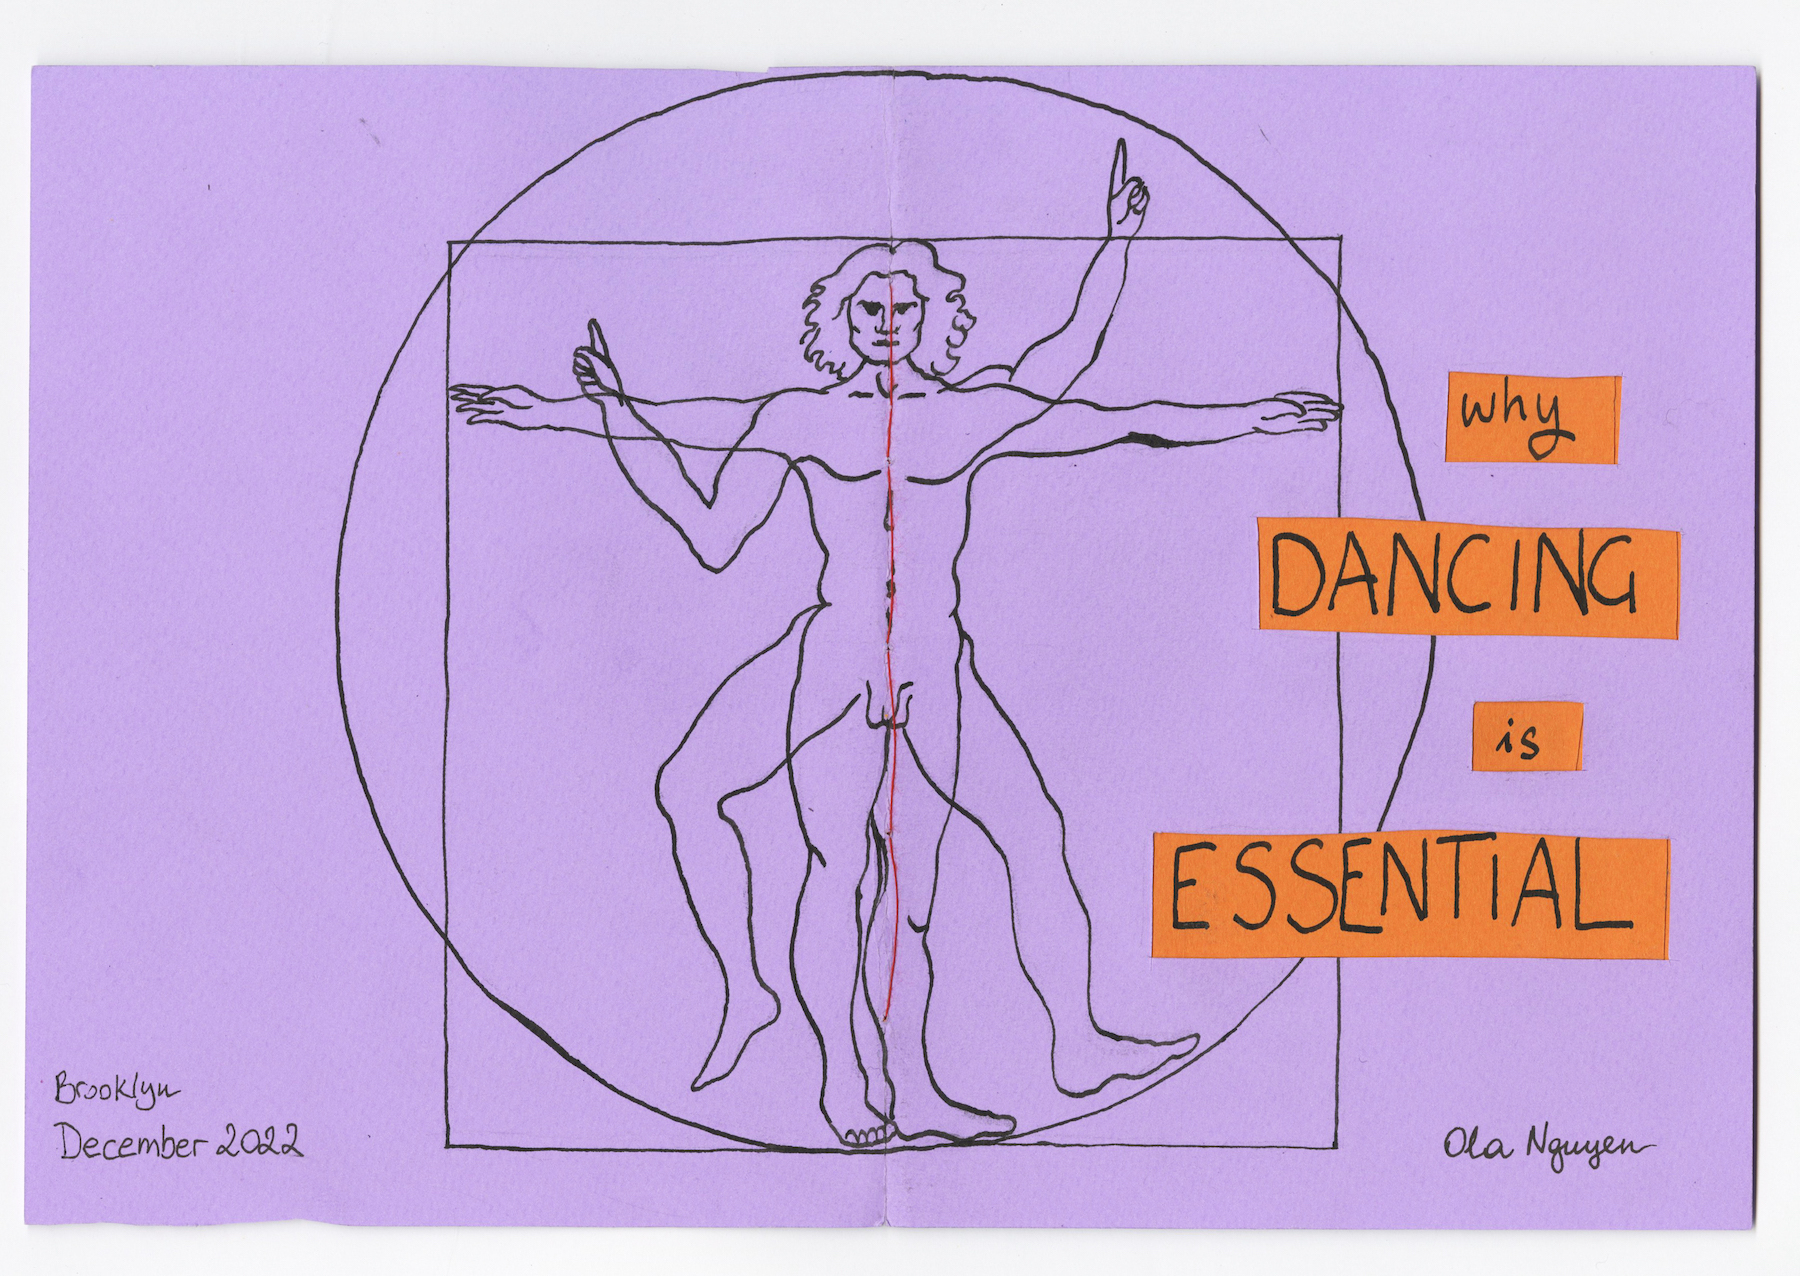 why
DANCING
is
ESSENTIAL
Brooklyn
December 2022
Ola Nguyen